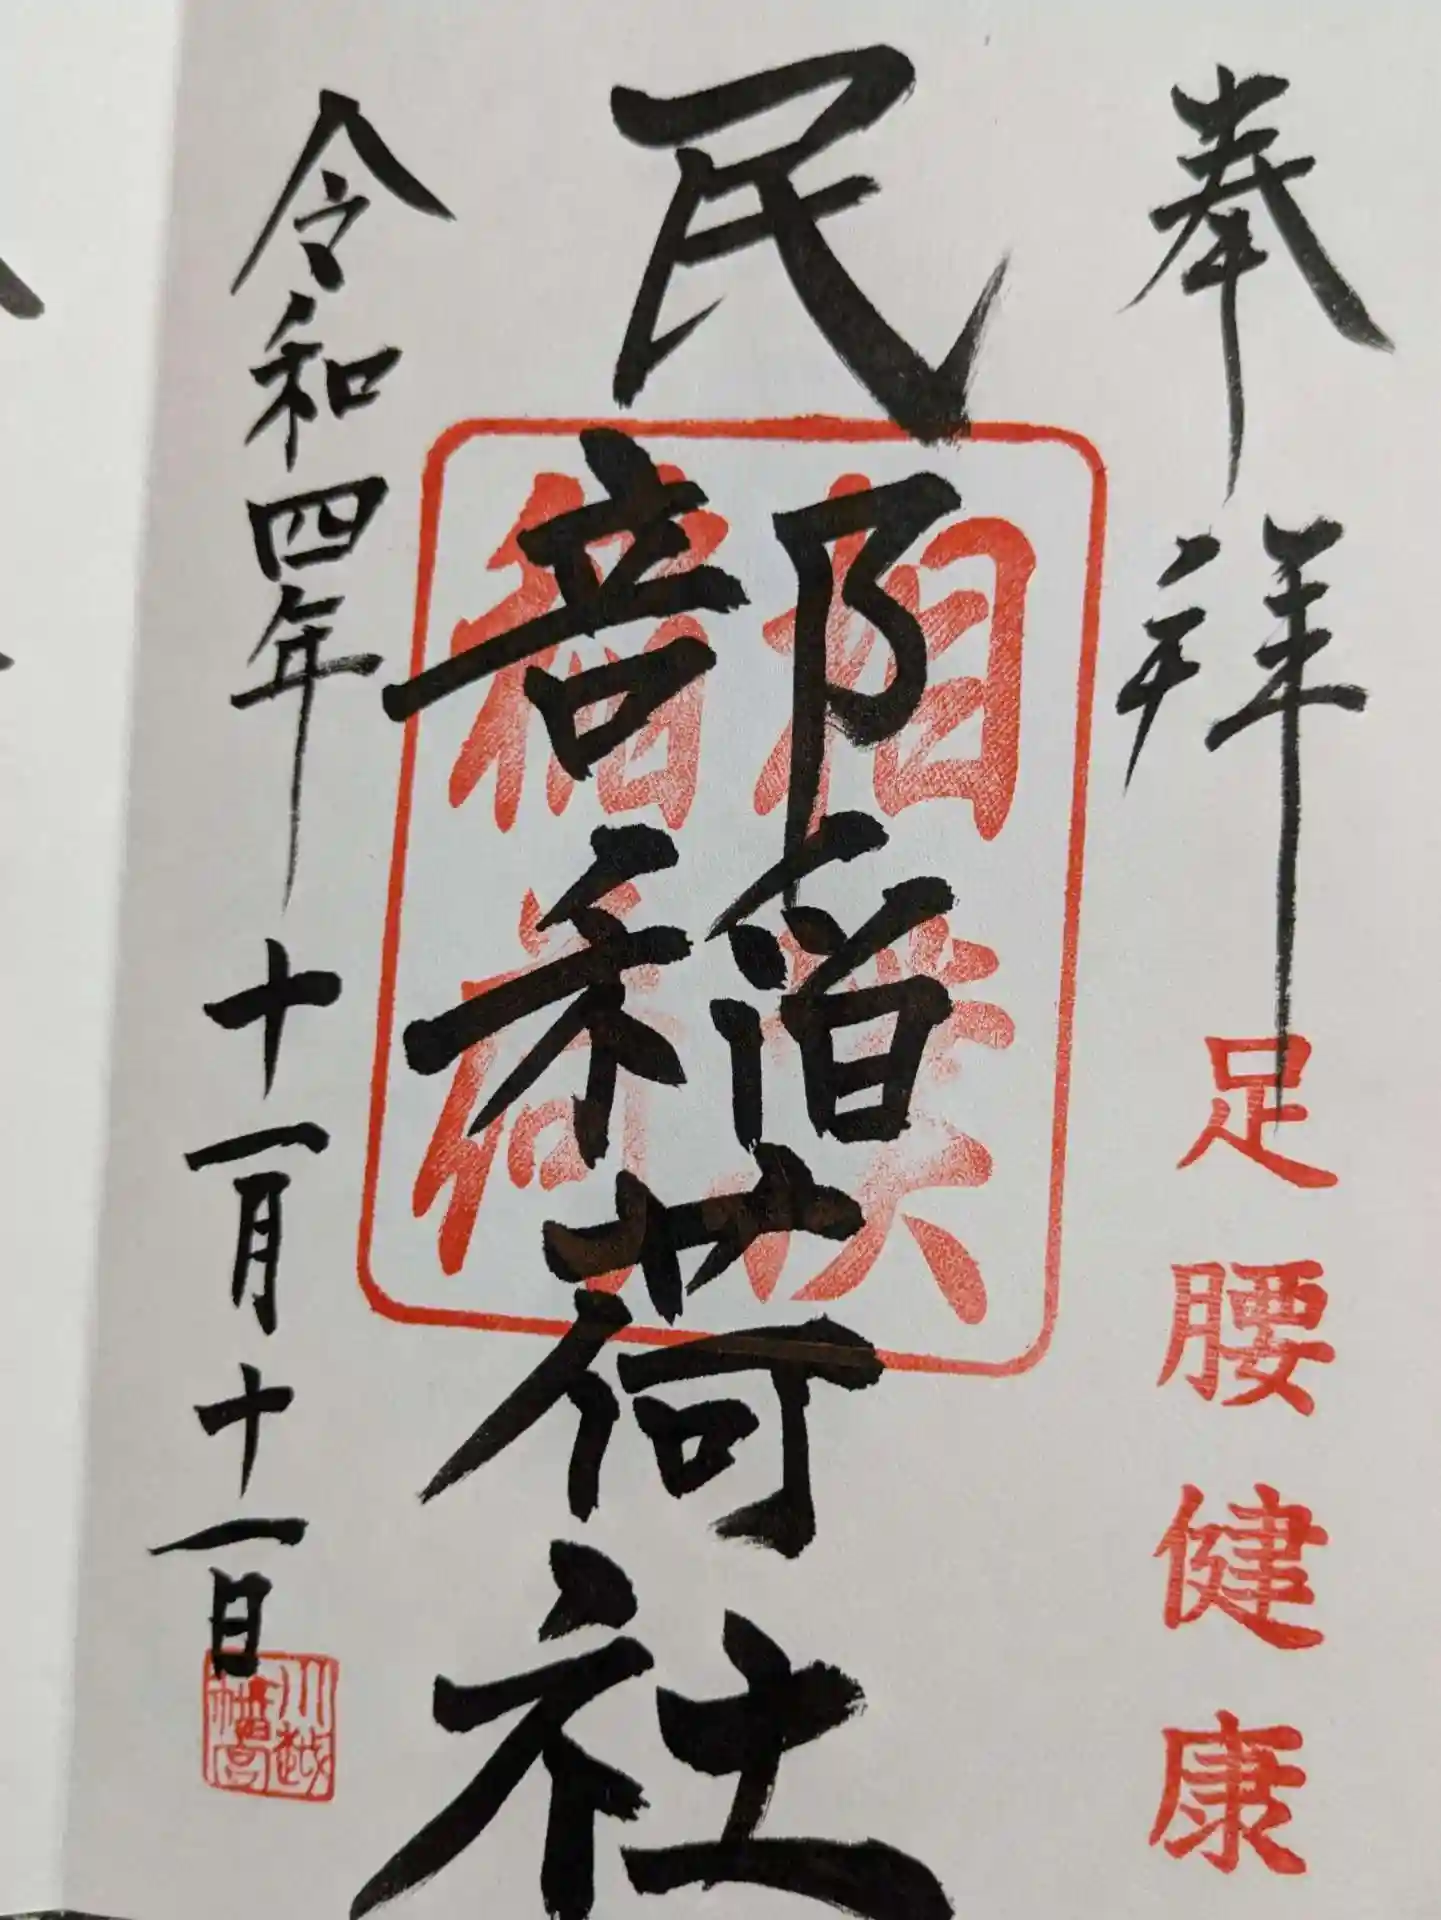 奉拝
足腰健康
民部稲荷社
相撲稲荷
令和四年十一月十一日
川越八幡宮